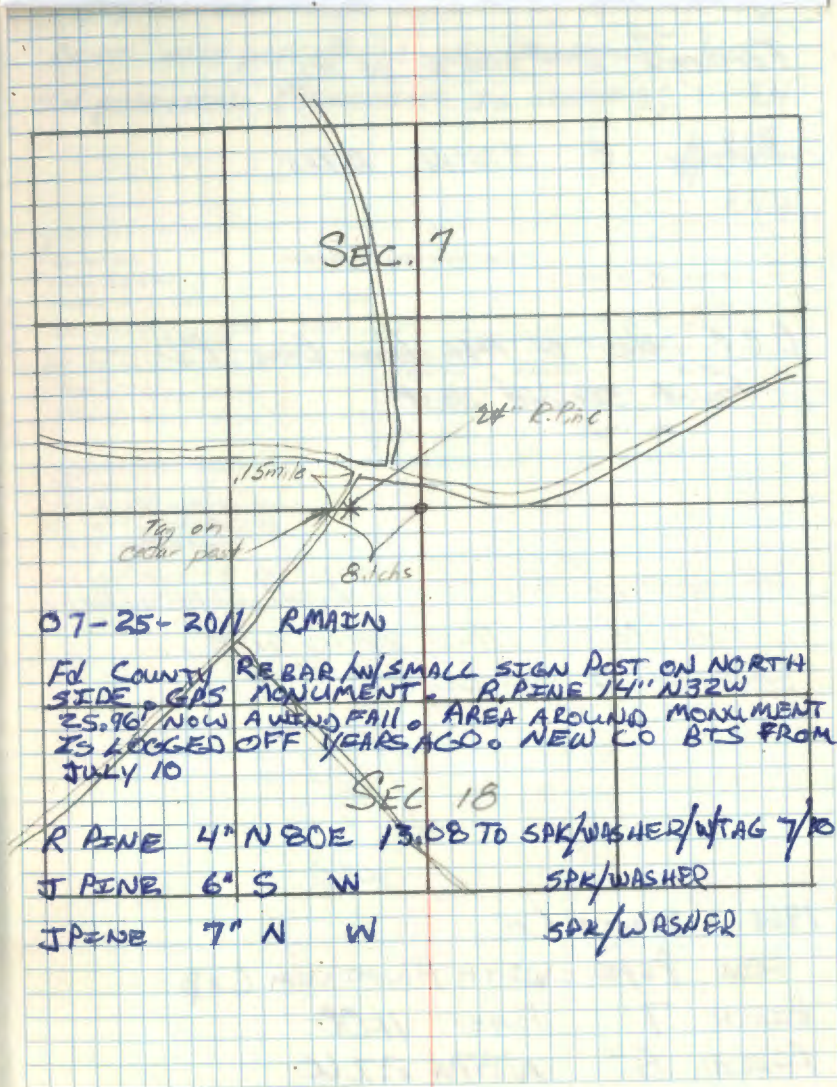 SEC. 7
24" R.Pine
.15mile
Tag on
cedar post
8.1chs
07-25-2011 RMAIN
Fd COUNTY REBAR/W/SMALL SIGN POST ON NORTH
SIDE. GPS MONUMENT. R.PINE 14" N32W
25.96' NOW A WINDFALL. AREA AROUND MONUMENT
IS LOGGED OFF YEARS AGO. NEW CO BTS FROM
JULY 10
SEC 18
R PINE 4" N 80E 13.08 TO SPK/WASHER/W/TAG 7/10
J PINE 6" S W SPK/WASHER
JPINE 7" N W SPK/WASHER